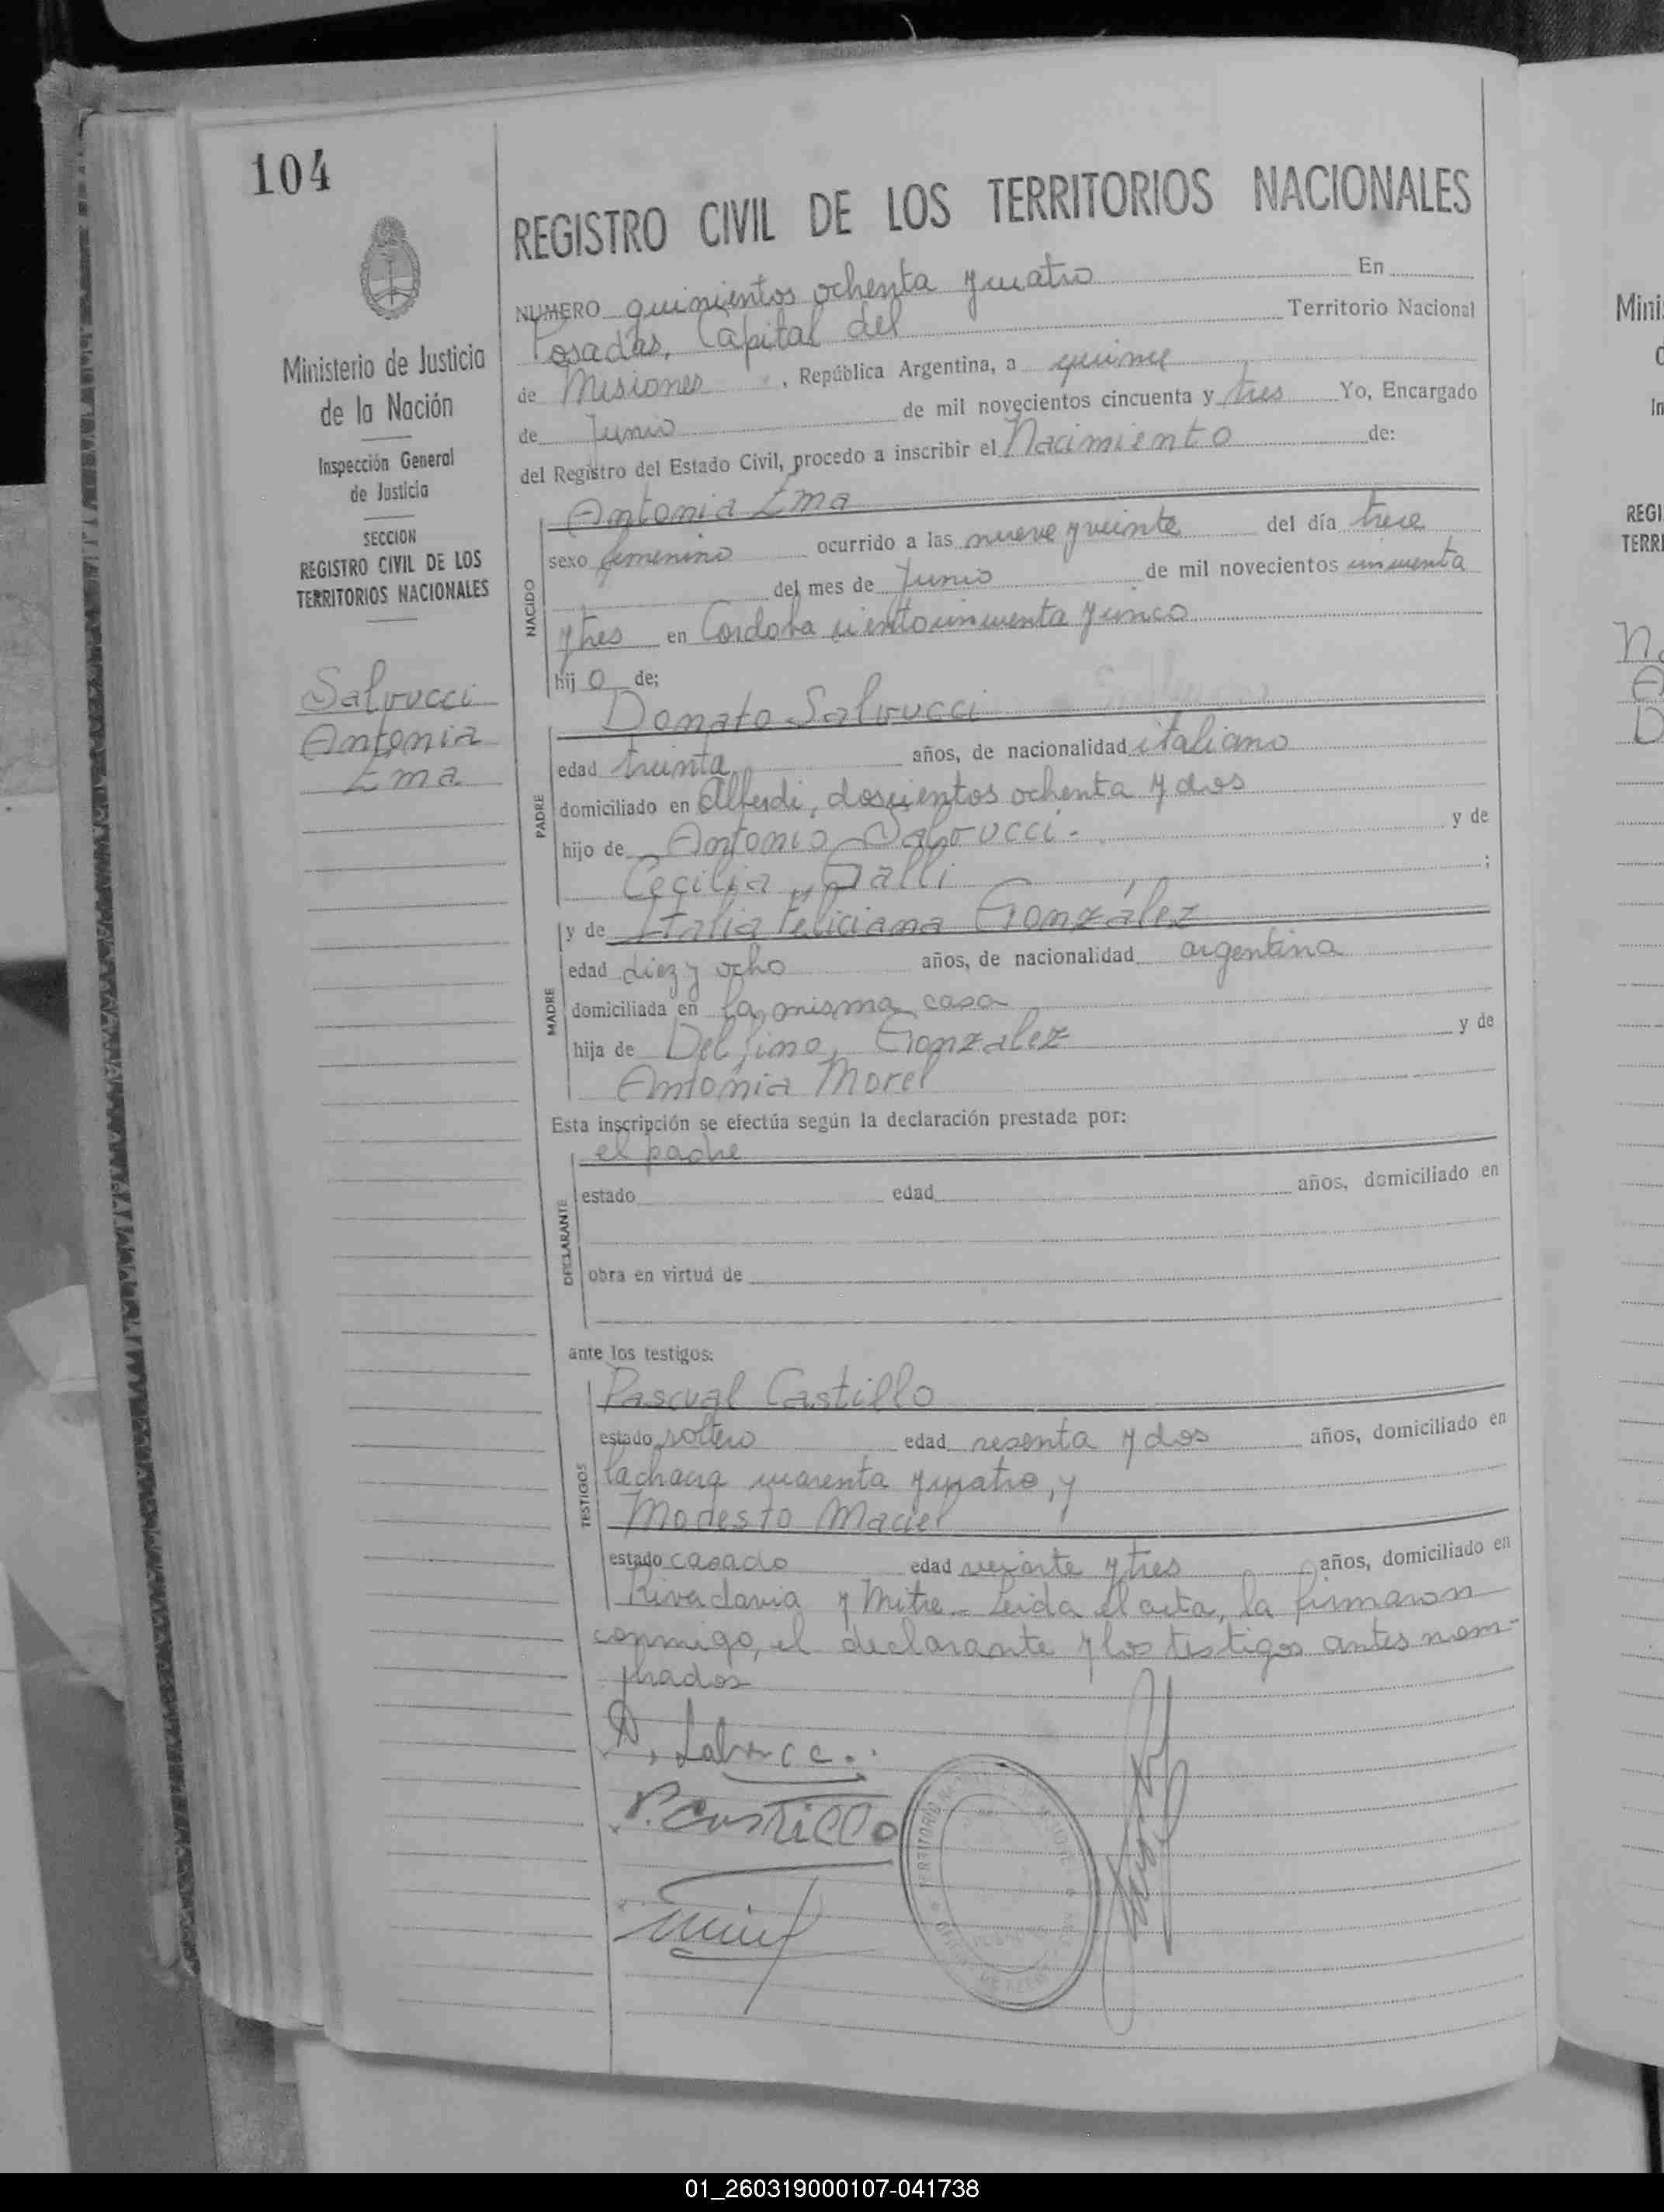 104
REGISTRO CIVIL DE LOS TERRITORIOS NACIONALES
Ministerio de Justicia
de la Nación
Inspección General
de Justicia
SECCION
REGISTRO CIVIL DE LOS
TERRITORIOS NACIONALES
Salvucci
Antonia
Ema
NUMERO quinientos ochenta y cuatro En
Posadas, Capital del Territorio Nacional
de Misiones, República Argentina, a quince
de Junio de mil novecientos cincuenta y tres Yo, Encargado
del Registro del Estado Civil, procedo a inscribir el Nacimiento de:
NACIDO
Antonia Ema
sexo femenino ocurrido a las nueve y veinte del día trece
del mes de Junio de mil novecientos cincuenta
y tres en Cordoba ciento cincuenta y cinco
hij o de:
PADRE
Donato Salvucci
edad treinta años, de nacionalidad italiano
domiciliado en Alberdi, doscientos ochenta y dos
hijo de Antonio Salvucci - y de
Cecilia Galli ;
MADRE
y de Italia Feliciana González
edad diez y ocho años, de nacionalidad argentina
domiciliada en la misma casa
hija de Delfino Gonzalez y de
Antonia Morel
Esta inscripción se efectúa según la declaración prestada por:
DECLARANTE
el padre
estado edad años, domiciliado en
obra en virtud de
ante los testigos:
TESTIGOS
Pascual Castillo
estado soltero edad sesenta y dos años, domiciliado en
la chacra cuarenta y cuatro, y
Modesto Maciel
estado casado edad veinte y tres años, domiciliado en
Rivadavia y Mitre - Leida el acta, la firmaron
conmigo, el declarante y los testigos antes nom-
brados
D. Salvucci
P. Castillo
TERRITORIO
POSADAS
Minis
REGI
TERRI
01_260319000107-041738